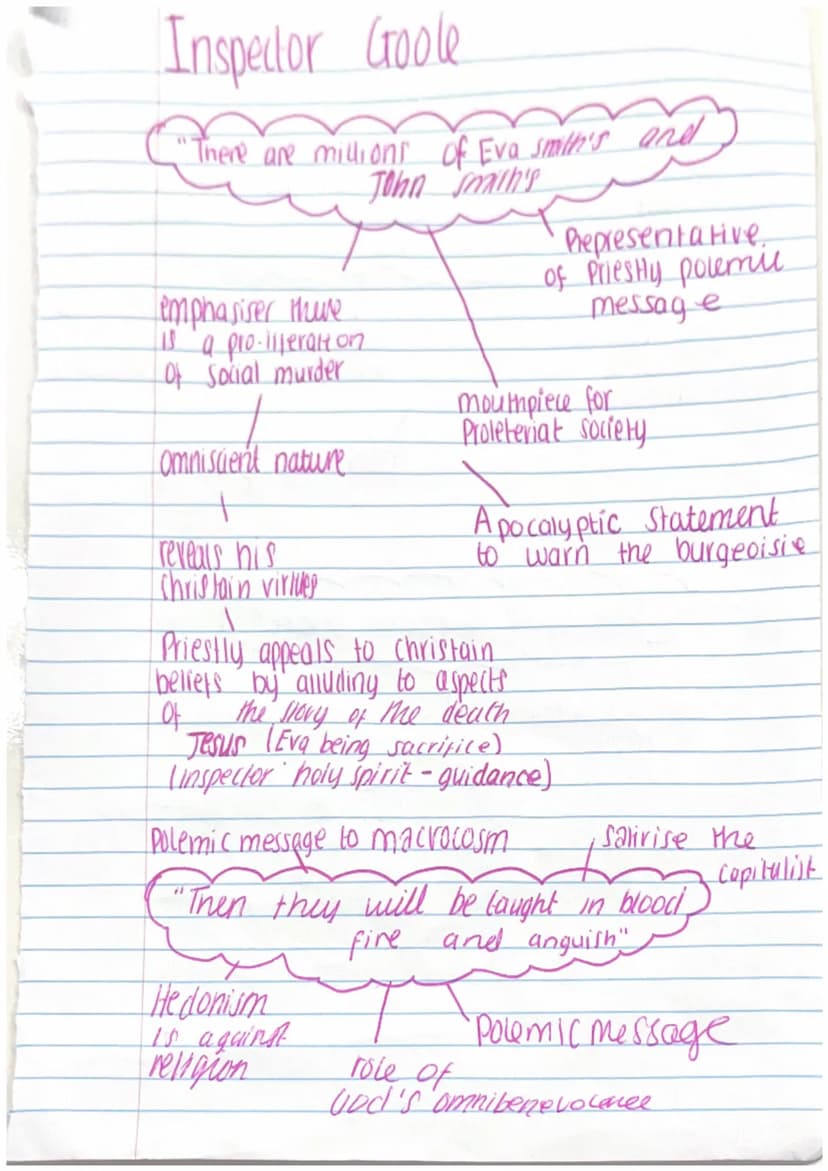 Inspector Goole
"There are millions of Eva smith's and
John smith's
Representative
of Priestly polemic
message
emphasiser there
is a pro-liferation
of social murder
mouthpiece for
Proleteriat society
omniscient nature
Apocalyptic statement
to warn the burgeoisie
reveals his
christain virtues
Priestly appeals to christain
beliefs by alluding to aspects
of the story of the death
Jesus (Eva being sacrifice)
(inspector holy spirit - guidance)
Polemic message to macrocosm
satirise the
capitalist
"Then they will be taught in blood
fire and anguish"
Hedonism
is against
religion
Polemic message
role of
God's omnibenevolence